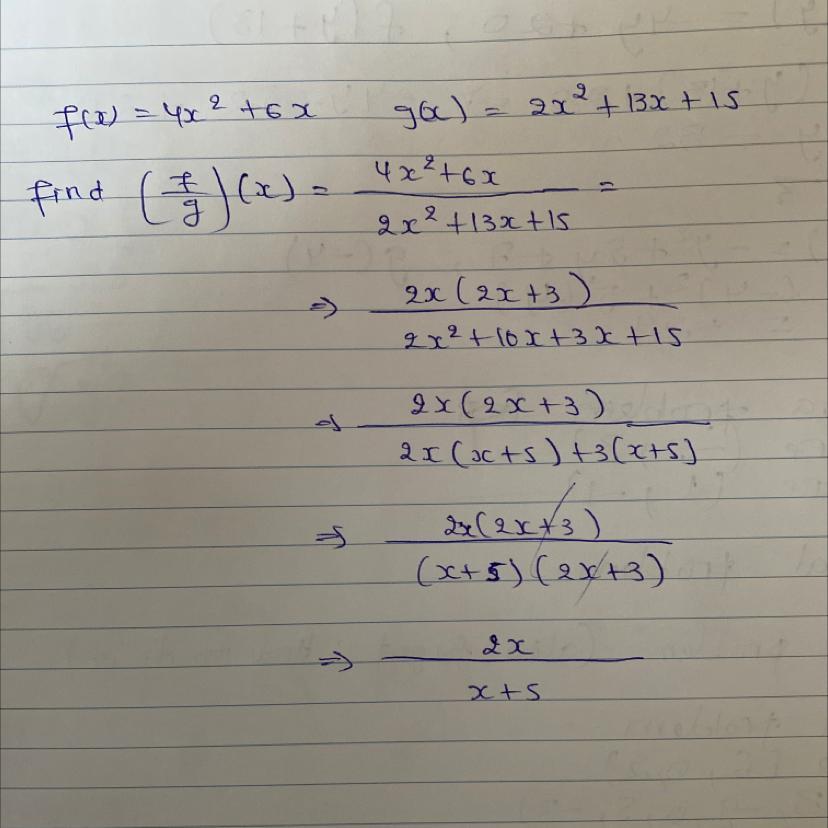 f(x) = 4x² + 6x    g(x) = 2x² + 13x + 15
find (f/g)(x) = (4x² + 6x)/(2x² + 13x + 15) =
⇒ 2x(2x+3)/(2x² + 10x + 3x + 15)
⇒ 2x(2x+3)/(2x(x+5) + 3(x+5))
⇒ 2x(2x+3)/((x+5)(2x+3))
⇒ 2x/(x+5)